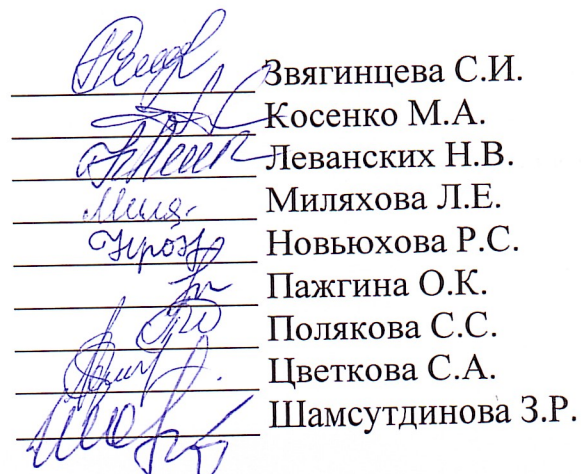 Звягинцева С.И.
Косенко М.А.
Леванских Н.В.
Миляхова Л.Е.
Новьюхова Р.С.
Пажгина О.К.
Полякова С.С.
Цветкова С.А.
Шамсутдинова З.Р.